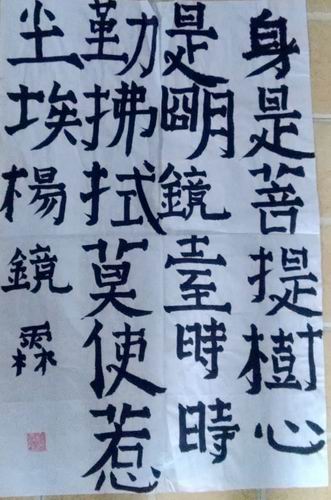 身是菩提樹心
是明鏡臺時時
勤拂拭莫使惹
尘埃楊鏡霖